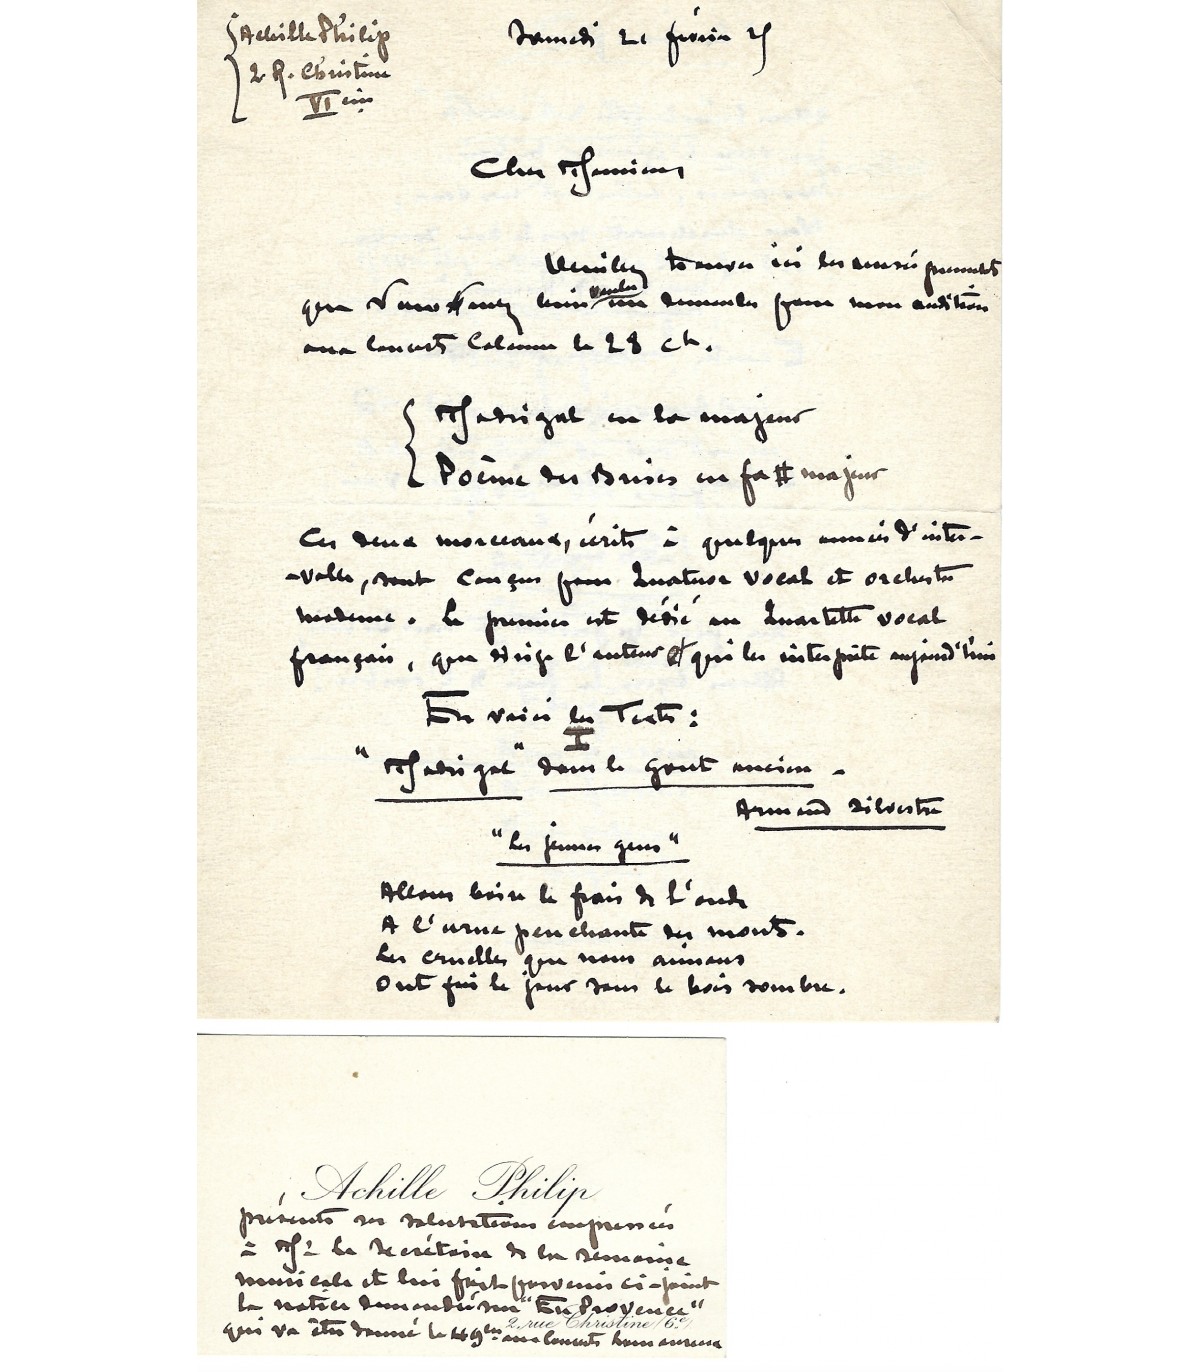 Achille Philip
2 R. Christine
VI em
Samedi 21 février 25
Cher Monsieur
Veuillez trouver ici les renseignements
que vous bien voulu me demander pour mon audition
aux Concerts Colonne le 28 ct.
Madrigal en la majeur
Poème des Brises en fa# majeur
Ces deux morceaux, écrits à quelques années d'inter-
-valle, sont conçus pour Quatuor vocal et orchestre
moderne. Le premier est dédié au Quartette vocal
français, que dirige l'auteur et qui les interprète aujourd'hui
En voici les Textes :
I
"Madrigal" dans le goût ancien -
Armand Silvestre
"Les jeunes gens"
Allons boire le frais de l'onde
A l'urne penchante des monts.
Les cruelles que nous aimons
Ont fui le jour sous le bois sombre.
Achille Philip
présente ses salutations empressées
à Mr le Secrétaire de la Semaine
musicale et lui fait parvenir ci-joint
la notice demandée sur "En Provence"
2, rue Christine (6e)
qui va être donné le aux Concerts Lamoureux